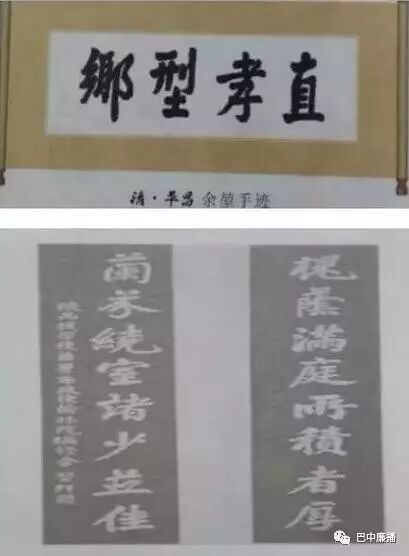 直孝型鄉
清·平昌 余堃手迹
槐蔭滿庭所積者厚
蘭芬繞室諸少並佳
巴中廉播